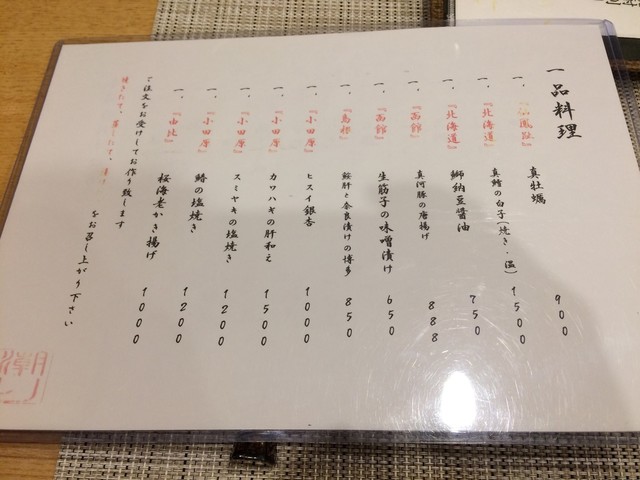 一品料理
一、『仙鳳趾』真牡蠣 900
一、『北海道』真鱈の白子(焼き・温) 1500
一、『北海道』鰤納豆醤油 750
一、『函館』真河豚の唐揚げ 888
一、『函館』生筋子の味噌漬け 650
一、『島根』鮟肝と奈良漬けの博多 850
一、『小田原』ヒスイ銀杏 1000
一、『小田原』カワハギの肝和え 1500
一、『小田原』スミヤキの塩焼き 1200
一、『小田原』鰆の塩焼き 1200
一、『由比』桜海老かき揚げ 1000
ご注文をお受けしてお作り致します
焼きたて、蒸したて、
をお召し上がり下さい